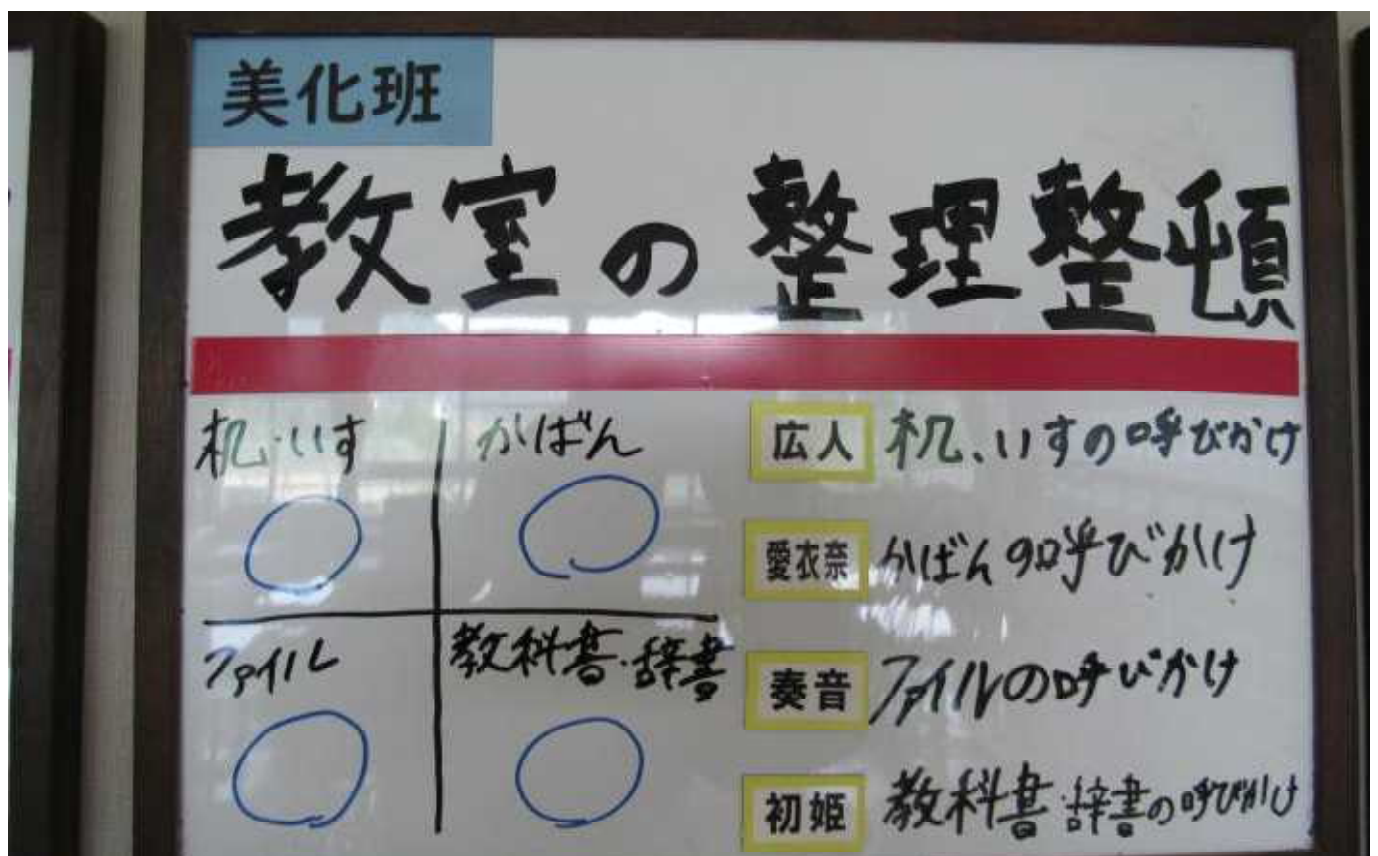 美化班
教室の整理整頓
机・いす
かばん
ファイル
教科書・辞書
広人 机、いすの呼びかけ
愛衣奈 かばんの呼びかけ
奏音 ファイルの呼びかけ
初姫 教科書・辞書の呼びかけ